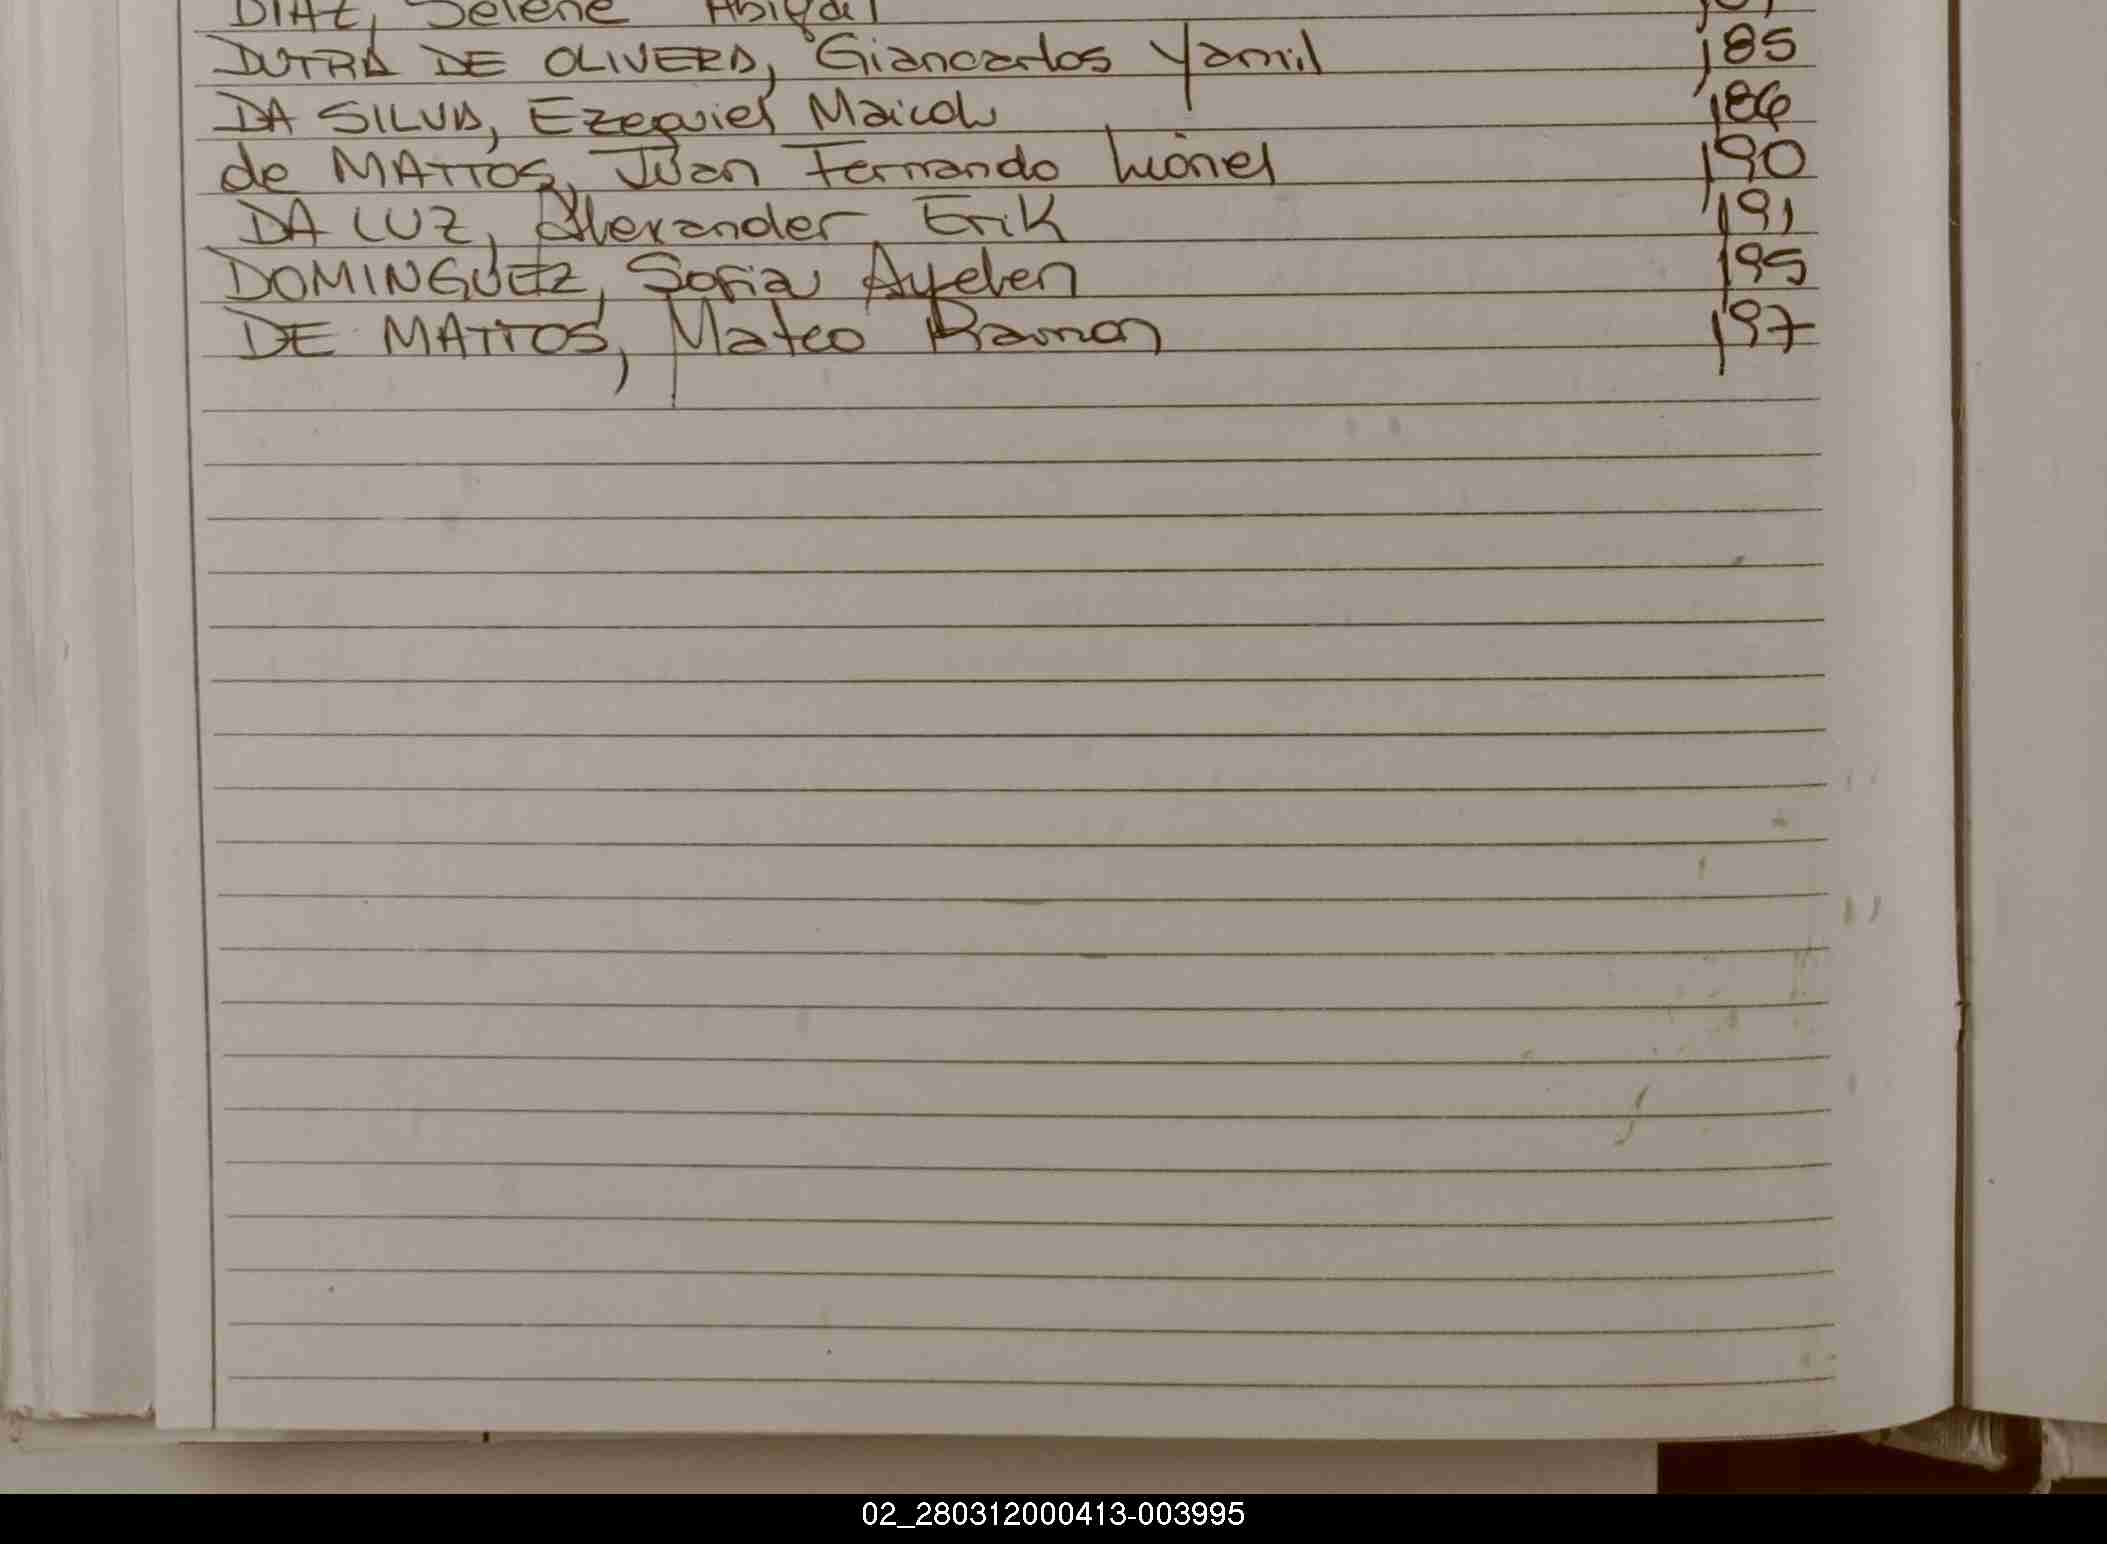 DIAZ, Selene Abigail
DUTRA DE OLIVERA, Giancarlos Yamil 185
DA SILVA, Ezequiel Maicol 186
de MATTOS, Juan Fernando Lionel 190
DA LUZ, Alexander Erik 191
DOMINGUEZ, Sofia Ayelen 195
DE MATTOS, Mateo Ramon 197
02_280312000413-003995